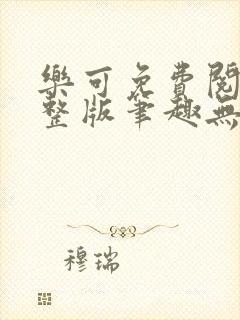 樂可免費閱
整版筆趣無
穆瑞